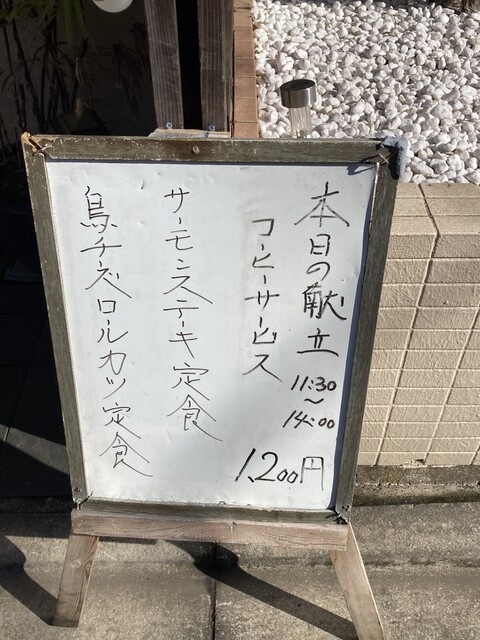 本日の献立 11:30〜14:00
コーヒーサービス
1,200円
サーモンステーキ定食
鳥チーズロールカツ定食